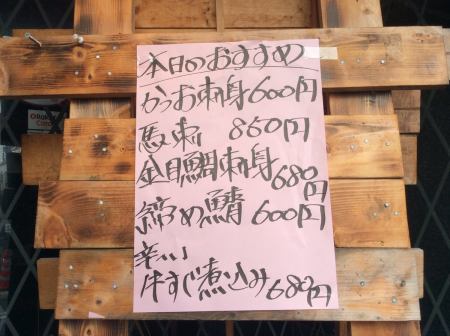 本日のおすすめ
かつお刺身600円
馬刺 860円
金目鯛刺身680円
締め鯖 600円
辛い
牛すじ煮込み680円